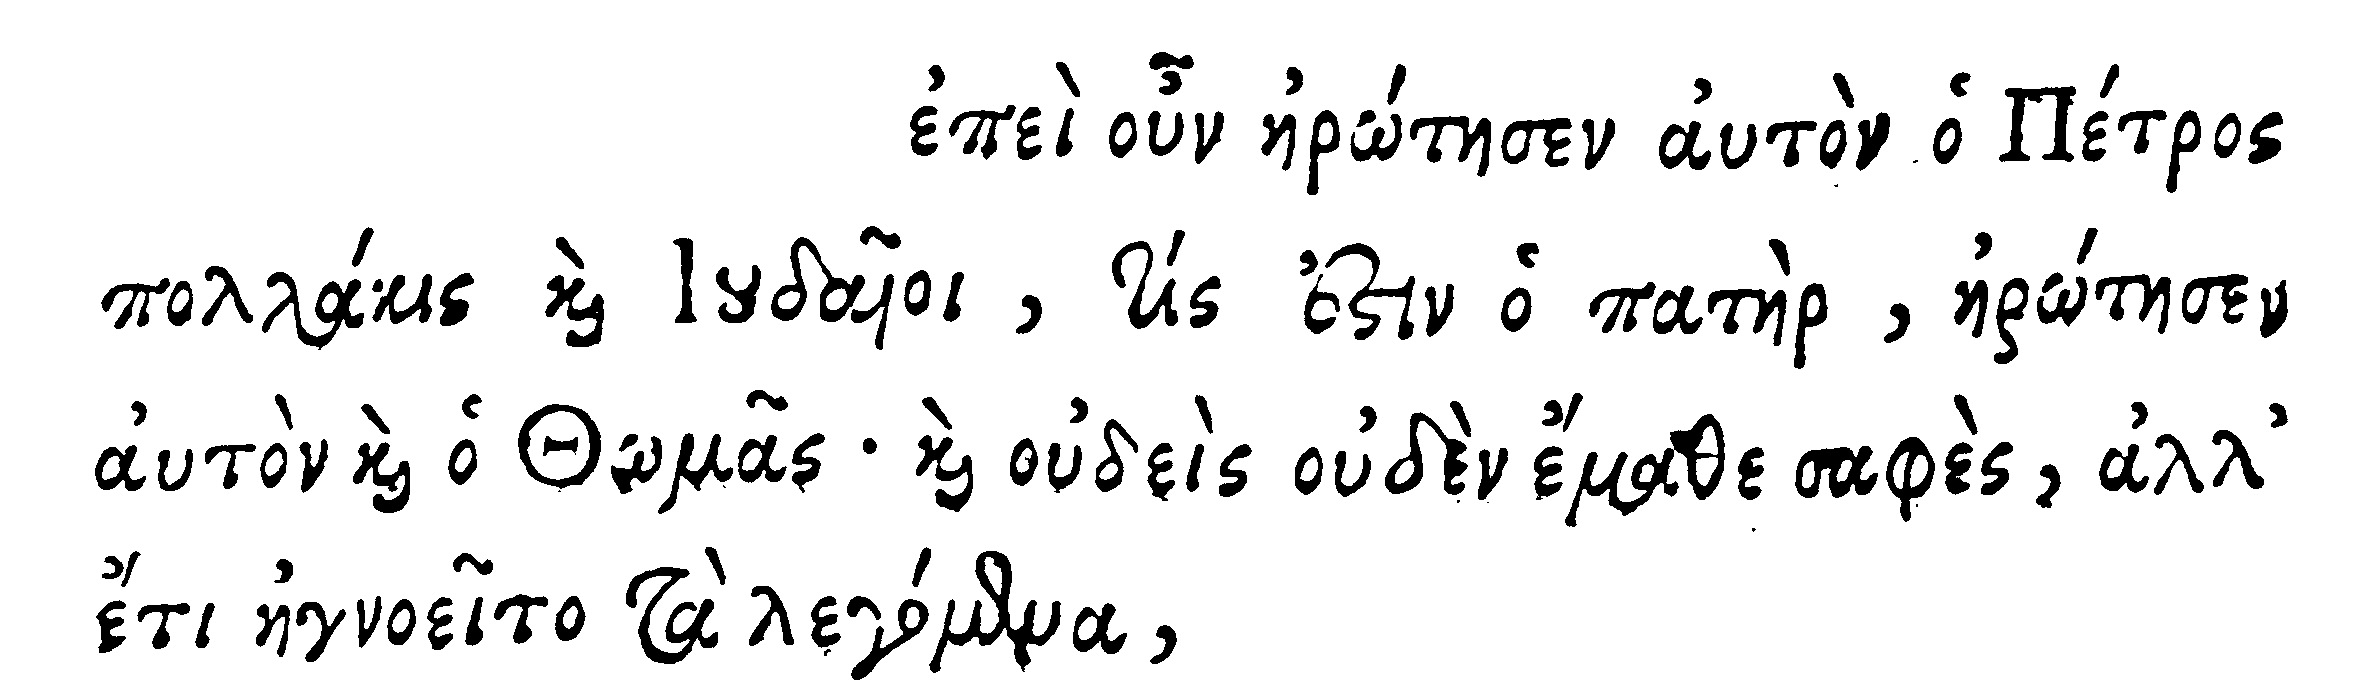 ἐπεὶ οὖν ἠρώτησεν ἀυτὸν ὁ Πέτρος
πολλάκις ϗ̀ Ιȣδαῖοι, τίς ἐϛιν ὁ πατὴρ, ἠρώτησεν
ἀυτὸν ϗ̀ ὁ Θωμᾶς · ϗ̀ οὐδεὶς οὐδὲν ἔμαθε σαφὲς, ἀλλ’
ἔτι ἠγνοεῖτο τὰ λεγόμενα,